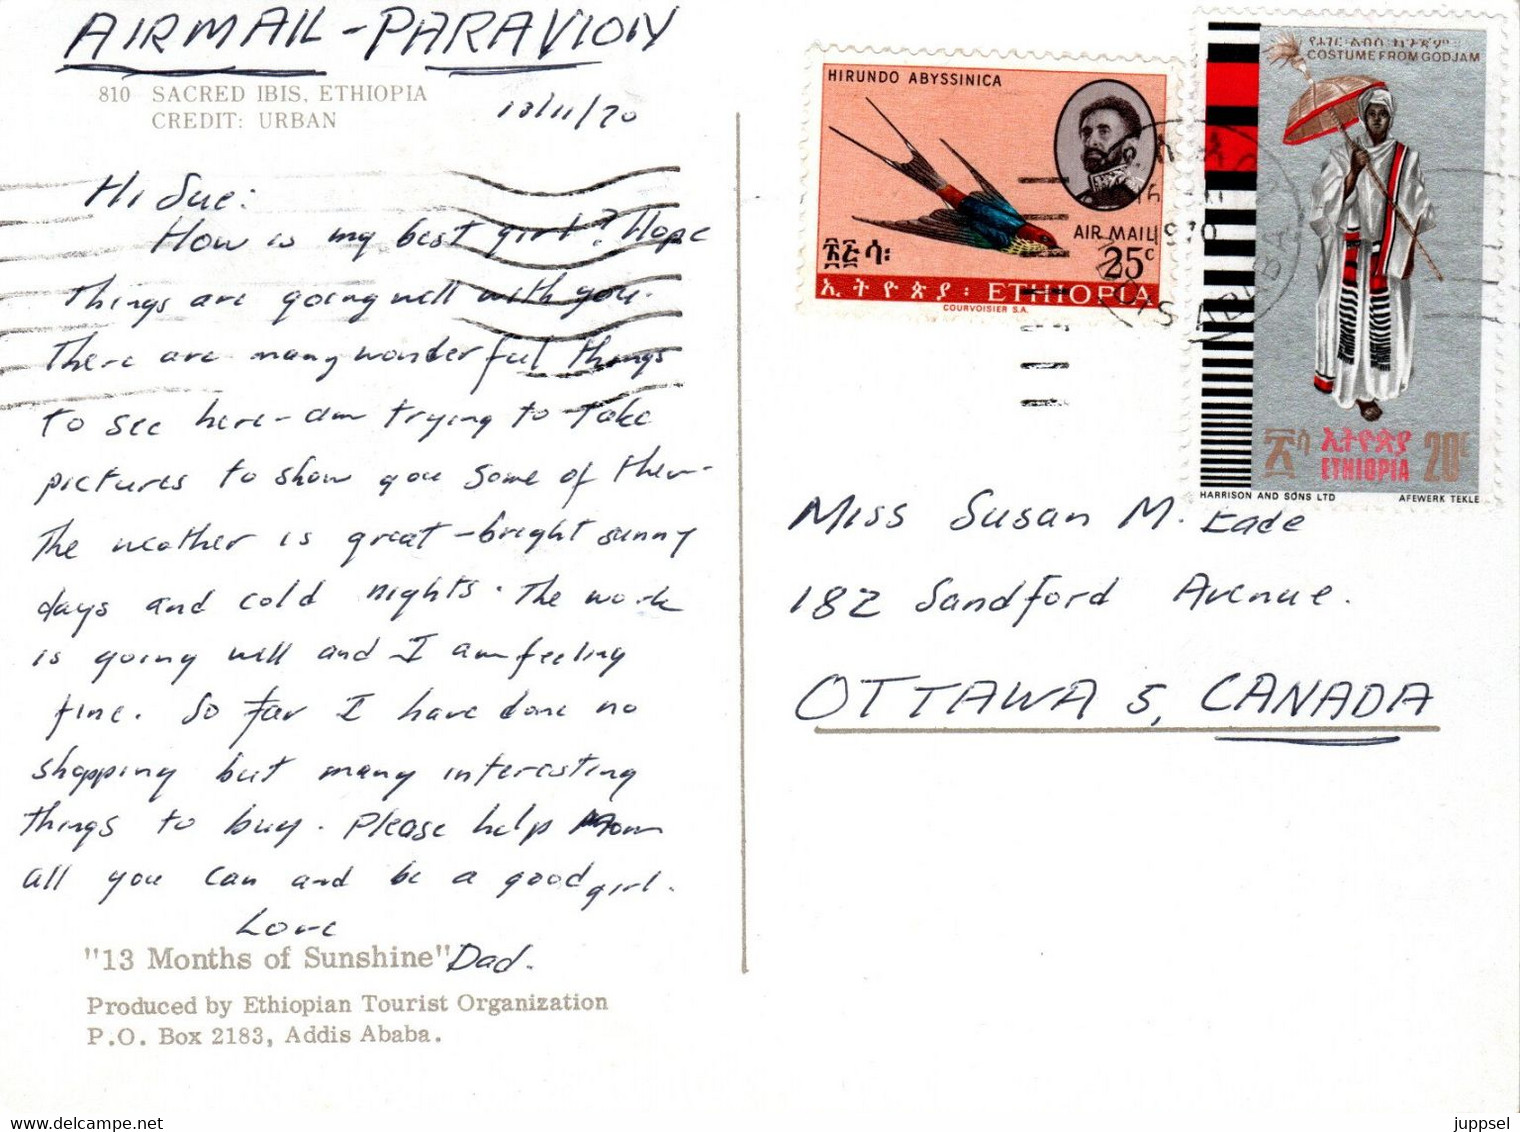 AIRMAIL - PARAVION
810 SACRED IBIS, ETHIOPIA
CREDIT: URBAN
13/11/70
Hi Sue:
How is my best girl? Hope
things are going well with you.
There are many wonderful things
to see here - am trying to take
pictures to show you some of them.
The weather is great - bright sunny
days and cold nights. The work
is going well and I am feeling
fine. So far I have done no
shopping but many interesting
things to buy. Please help Mom
all you can and be a good girl.
Love
Dad.
"13 Months of Sunshine"
Produced by Ethiopian Tourist Organization
P.O. Box 2183, Addis Ababa.
HIRUNDO ABYSSINICA
AIR MAIL
25c
ኢትዮጵያ፡ ETHIOPIA
COURVOISIER S.A.
የሐገር ልብስ ከጎጃም
COSTUME FROM GODJAM
ኢትዮጵያ
ETHIOPIA
20c
HARRISON AND SONS LTD AFEWERK TEKLE
Miss Susan M. Eade
182 Sandford Avenue.
OTTAWA 5, CANADA
juppsel